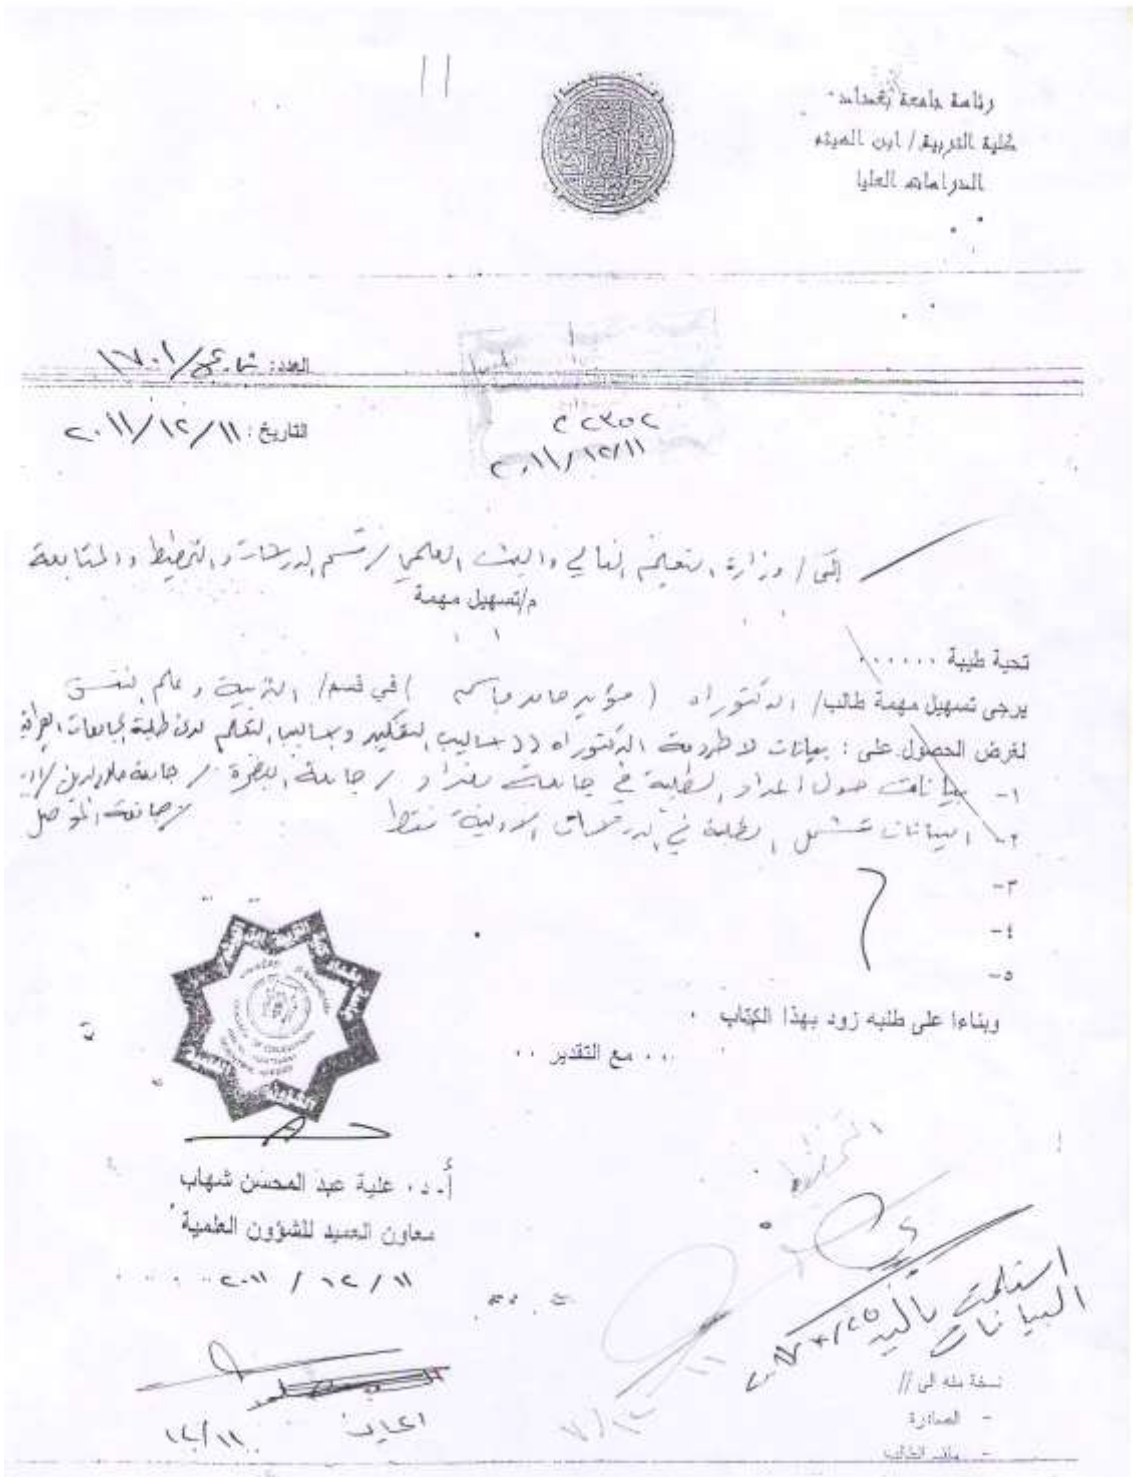 رئاسة جامعة بغداد
كلية التربية / ابن الهيثم
الدراسات العليا
العدد: ١٧٠١/
التاريخ: ١١/١٢/٢٠١١
٢٢٣٥٢
٢٠١١/١٢/١١
إلى / وزارة التعليم العالي والبحث العلمي / قسم الدراسات والتخطيط والمتابعة
م/تسهيل مهمة
تحية طيبة ......
يرجى تسهيل مهمة طالب/ الدكتوراه ( مؤيد حامد جاسم ) في قسم/ التربية وعلم النفس
لغرض الحصول على : بيانات لاطروحة الدكتوراه (( اساليب التفكير واساليب التعلم لدى طلبة الجامعات العراقية
١- بيانات حول اعداد الطلبة في جامعة بغداد / جامعة البصرة / جامعة صلاح الدين /
/ جامعة الموصل
٢- البيانات تشمل الطلبة في الدراسات الاولية فقط
٣-
٤-
٥-
وبناءا على طلبه زود بهذا الكتاب .
... مع التقدير ..
أ.د. علية عبد المحسن شهاب
معاون العميد للشؤون العلمية
٢٠١١ / ١٢ / ١١
استلمت باليد
البيانات
نسخة منه الى //
- الصادرة
- ملف الطالب
١٢/١١